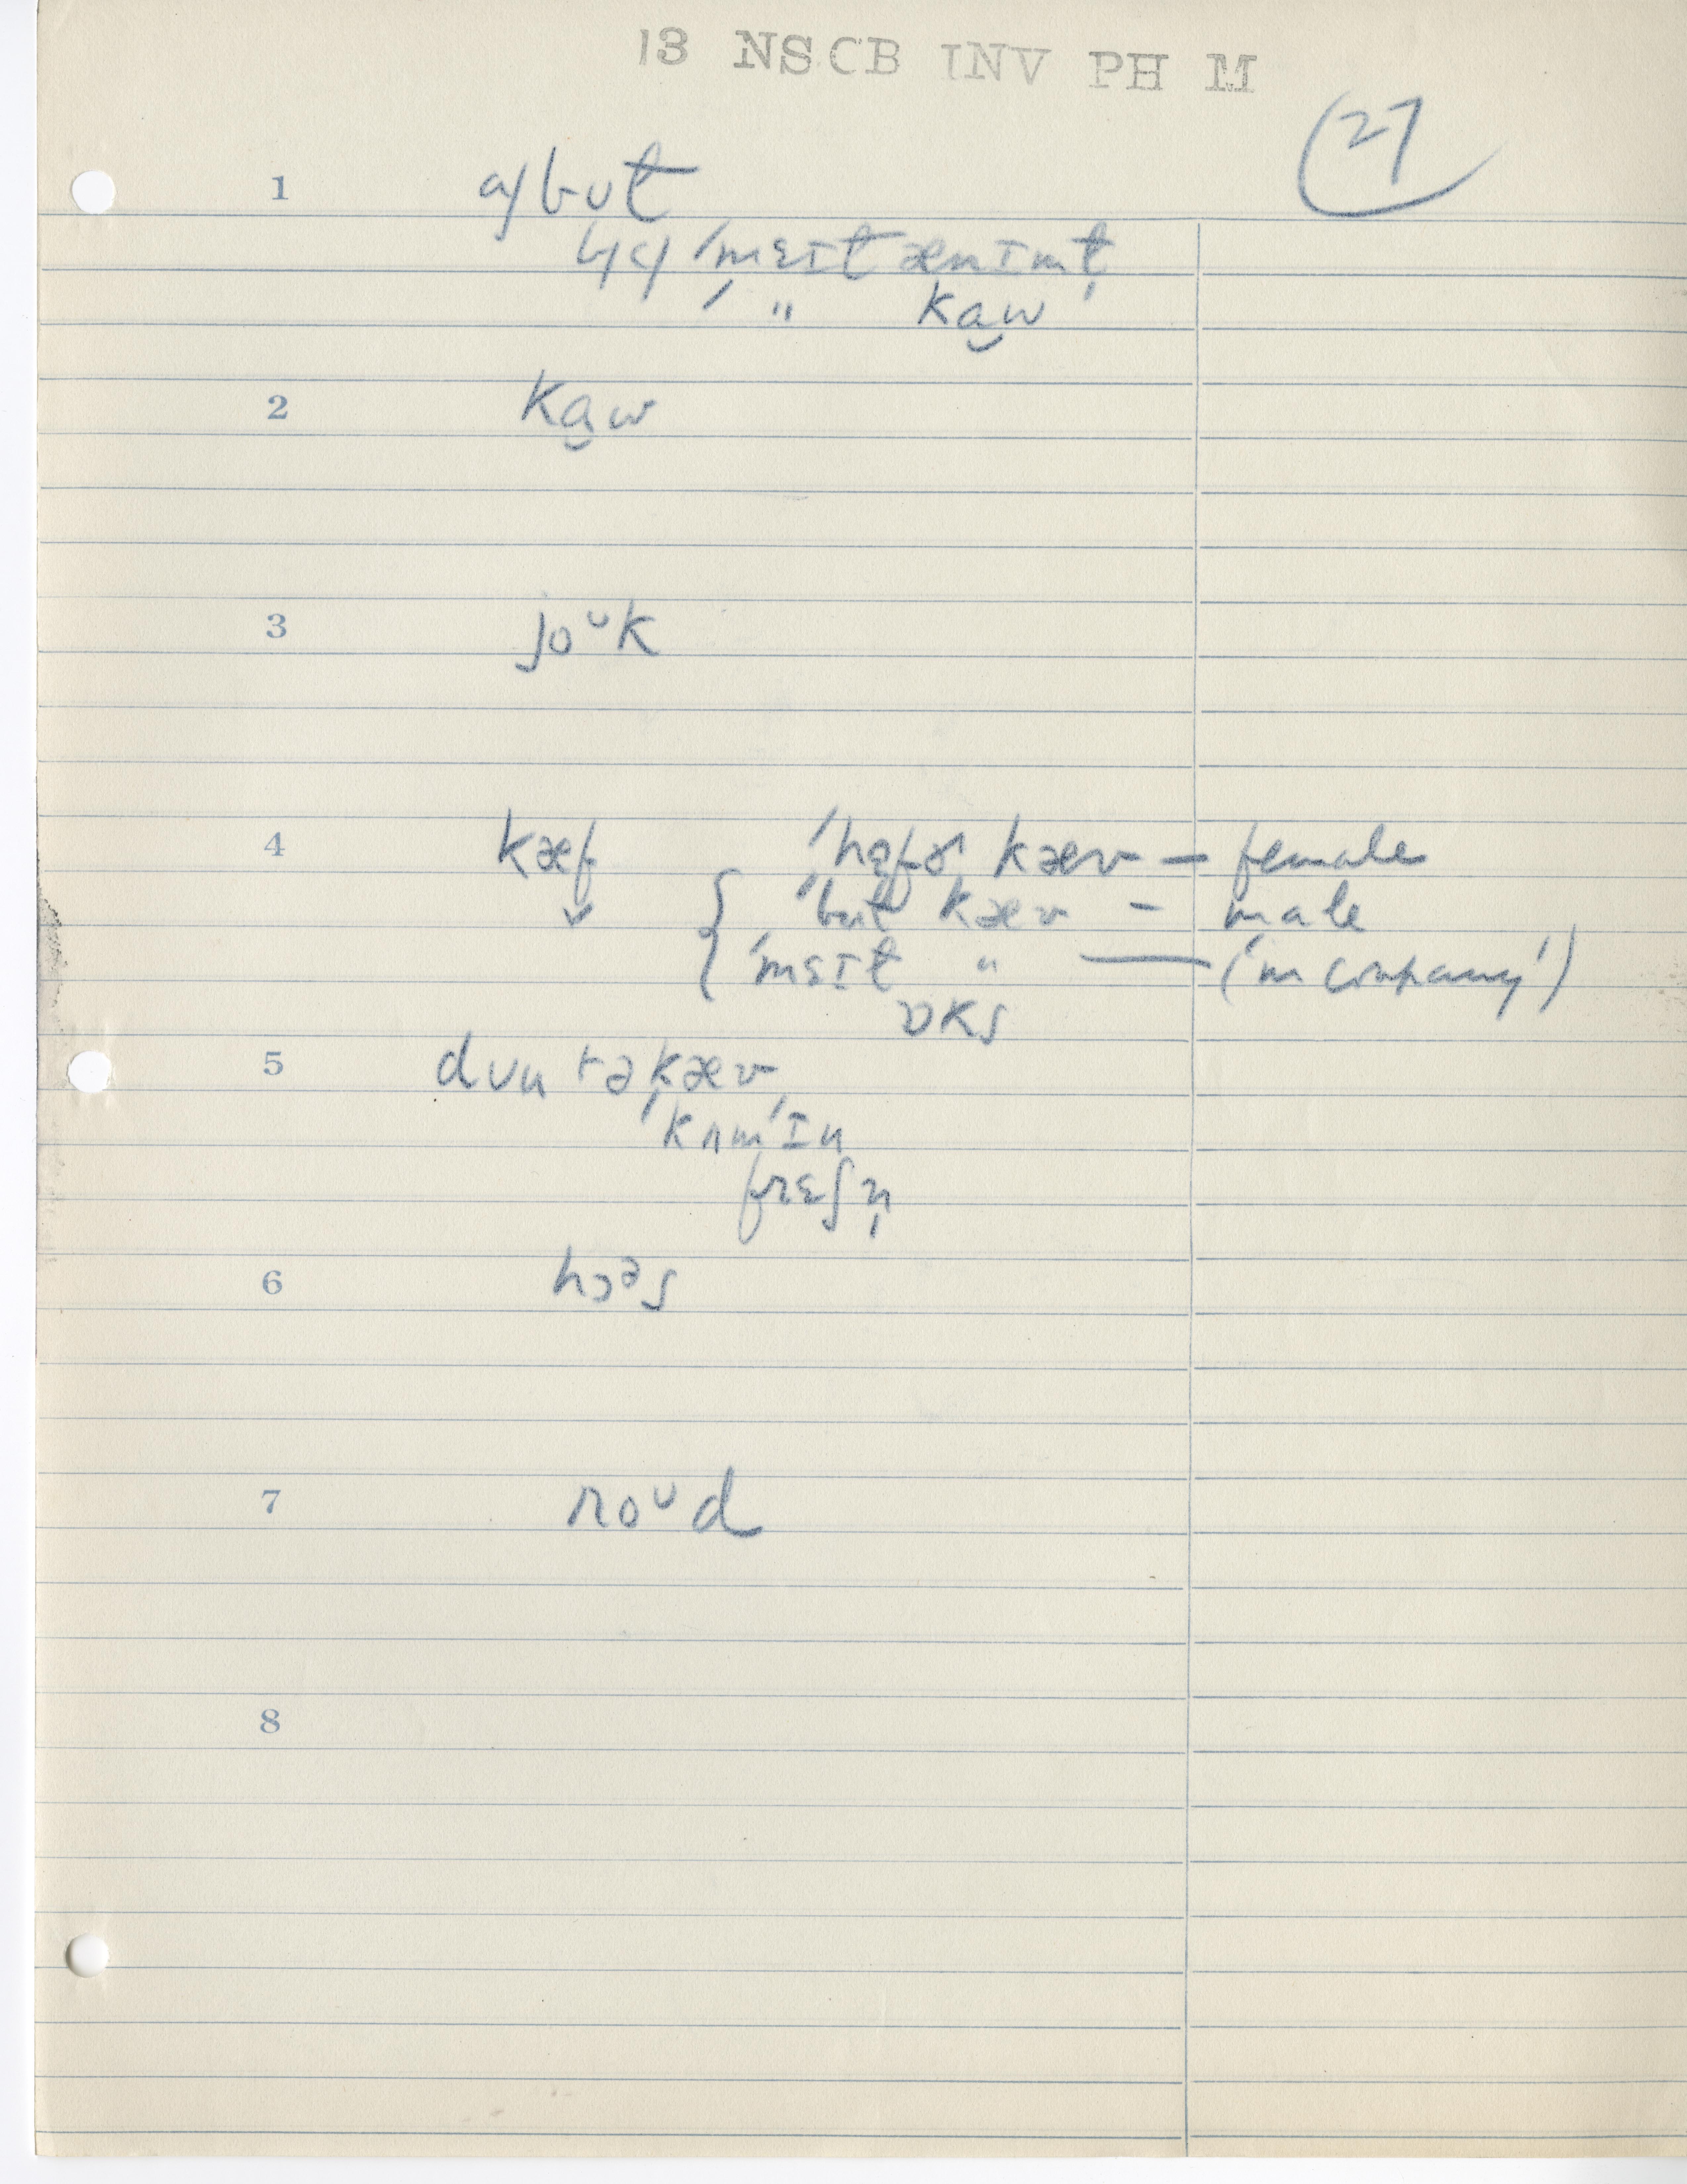 13 NSCB INV PH M
27
1 a/but
ˈmɛɪt ænɪml̩
ˌ " ka̯w
2 ka̯w
3 joᴜk
4 kæf ˈhɛfɚ kæv — female
ˈbʊt kæv — male
ˈmɛɪt " — ('in company')
ɒks
5 kæv
ˈkʌmˈɪn
frɛʃn̩
6 hɔᵊs
7 roᴜd
8